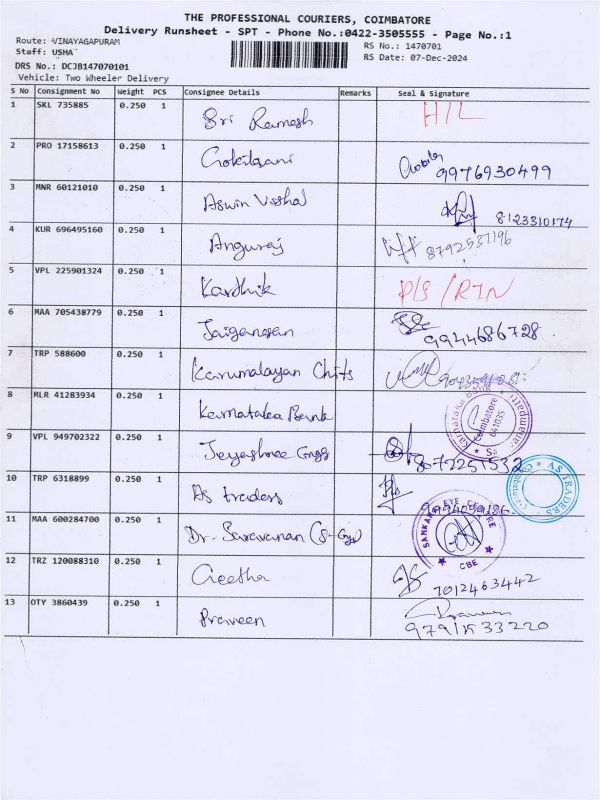 THE PROFESSIONAL COURIERS, COIMBATORE
Delivery Runsheet - SPT - Phone No.:0422-3505555 - Page No.:1
Route: VINAYAGAPURAM
Staff: USHA
DRS No.: DCJB147070101
Vehicle: Two Wheeler Delivery
RS No.: 1470701
RS Date: 07-Dec-2024
S No Consignment No Weight PCS Consignee Details Remarks Seal & Signature
1 SKL 735885 0.250 1 Sri Ramesh H/L
2 PRO 17158613 0.250 1 Gokilaani 9976930499
3 MNR 60121010 0.250 1 Aswin Vishal 8123310174
4 KUR 696495160 0.250 1 Anguraj 8792537196
5 VPL 225901324 0.250 1 Karthik P/S / RTN
6 MAA 705438779 0.250 1 Jaiganesan 9944686728
7 TRP 588600 0.250 1 Karumalayan Chits
8 MLR 41283934 0.250 1 Karnataka Bank
Karnataka Bank Coimbatore 641035
9 VPL 949702322 0.250 1 Jeyashree Engg 8072251532
10 TRP 6318899 0.250 1 As traders
AS TRADERS
11 MAA 600284700 0.250 1 Dr. Saravanan
SANKARA EYE CENTRE CBE
12 TRZ 120088310 0.250 1 Geetha 7012463442
13 OTY 3860439 0.250 1 Praveen